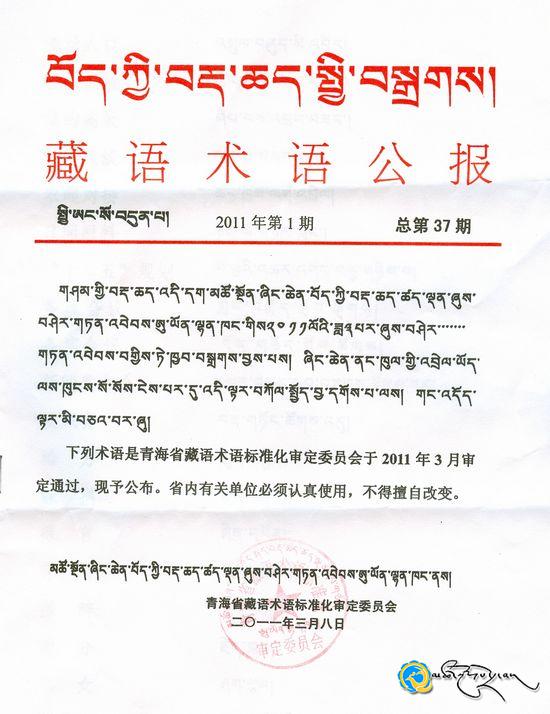 བོད་ཀྱི་བརྡ་ཆད་སྤྱི་བསྒྲགས།
藏语术语公报
སྤྱི་ཨང་སོ་བདུན་པ། 2011 年第 1 期 总第 37 期
གཤམ་གྱི་བརྡ་ཆད་འདི་དག་མཚོ་སྔོན་ཞིང་ཆེན་བོད་ཀྱི་བརྡ་ཆད་ཚད་ལྡན་ཞུས་
བཤེར་གཏན་འབེབས་ཨུ་ཡོན་ལྷན་ཁང་གིས༢༠༡༡ལོའི་ཟླ༣པར་ཞུས་བཤེར་……
གཏན་འབེབས་བགྱིས་ཏེ་ཁྱབ་བསྒྲགས་བྱས་པས། ཞིང་ཆེན་ནང་ཁུལ་གྱི་འབྲེལ་ཡོད་
ལས་ཁུངས་སོ་སོས་ངེས་པར་དུ་འདི་ལྟར་བཀོལ་སྤྱོད་བྱ་དགོས་པ་ལས། གང་འདོད་
ལྟར་མི་བཅའ་བར་ཞུ།
下列术语是青海省藏语术语标准化审定委员会于 2011 年 3 月审
定通过，现予公布。省内有关单位必须认真使用，不得擅自改变。
མཚོ་སྔོན་ཞིང་ཆེན་བོད་ཀྱི་བརྡ་ཆད་ཚད་ལྡན་ཞུས་བཤེར་གཏན་འབེབས་ཨུ་ཡོན་ལྷན་ཁང་ནས།
青海省藏语术语标准化审定委员会
二〇一一年三月八日
审定委员会